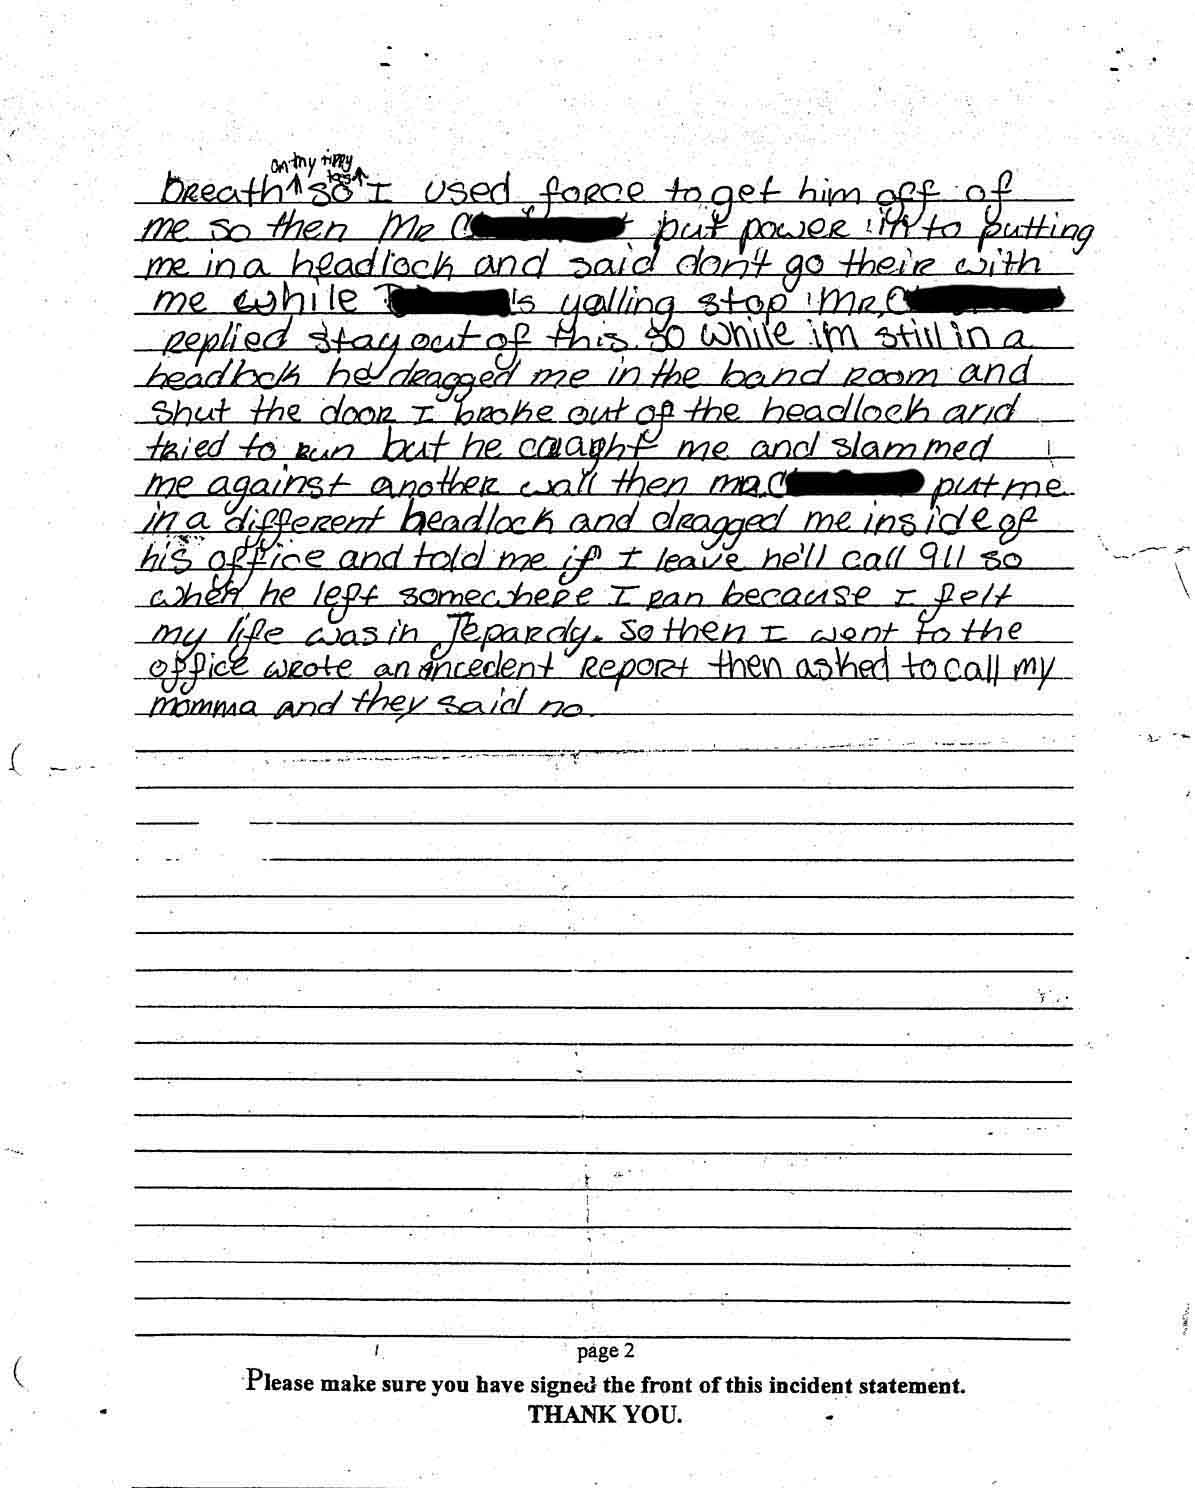 on my tippy
toes
breath so I used force to get him off of
me so then Mr C put power in to putting
me in a headlock and said don't go their with
me while T 's yelling stop Mr. C
replied stay out of this. so while i'm still in a
headlock he dragged me in the band room and
shut the door I broke out of the headlock and
tried to run but he caught me and slammed
me against another wall then mr. C put me
in a different headlock and dragged me inside of
his office and told me if I leave he'll call 911 so
when he left somewhere I ran because I felt
my life was in Jepardy. So then I went to the
office wrote an incedent Report then asked to call my
momma and they said no.
page 2
Please make sure you have signed the front of this incident statement.
THANK YOU.